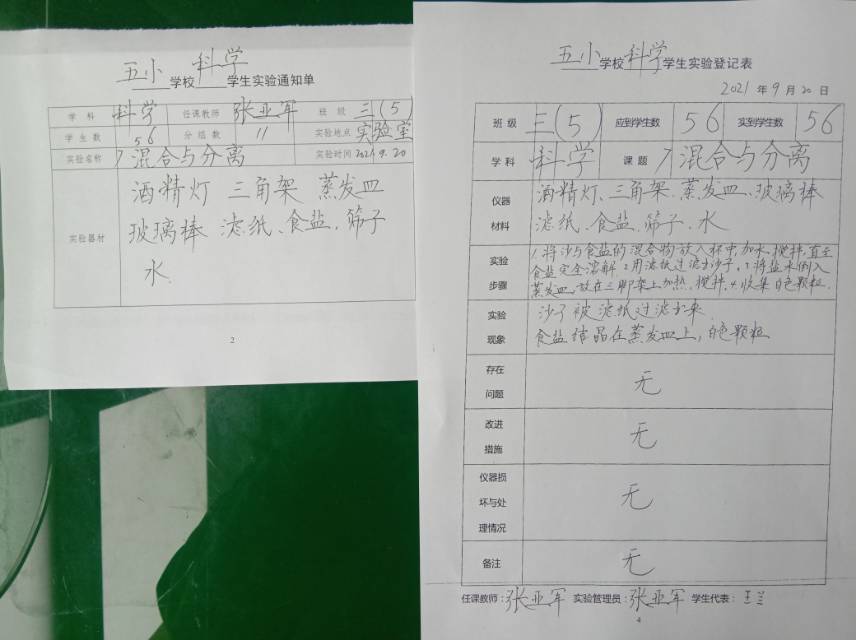 五小学校科学学生实验通知单
学科 科学 任课教师 张亚军 班级 三(5)
学生数 56 分组数 11 实验地点 实验室
实验名称 7混合与分离 实验时间 2021.9.20
实验器材
酒精灯 三角架 蒸发皿
玻璃棒 滤纸、食盐,筛子
水
2
五小学校科学学生实验登记表
2021年9月20日
班级 三(5) 应到学生数 56 实到学生数 56
学科 科学 课题 7混合与分离
仪器材料
酒精灯、三角架、蒸发皿、玻璃棒
滤纸、食盐、筛子、水
实验步骤
1.将沙与食盐的混合物放入杯中,加水,搅拌,直至
食盐完全溶解.2.用滤纸过滤出沙子,3.将盐水倒入
蒸发皿,放在三脚架上加热,搅拌,4.收集白色颗粒.
实验现象
沙子被滤纸过滤出来.
食盐结晶在蒸发皿上,白色颗粒
存在问题 无
改进措施 无
仪器损坏与处理情况 无
备注 无
任课教师:张亚军 实验管理员:张亚军 学生代表:王兰
4